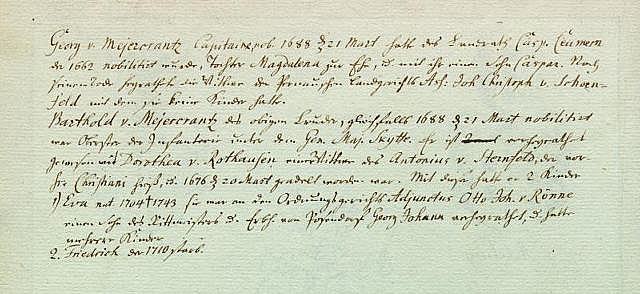 Georg v. Mejercrantz Capitaine, nob. 1688 d 21 Mart hatte des Landraths Casp. Ceumern
der 1662 nobilitirt wurde, Tochter Magdalena zur Ehe, u. mit ihr einen Sohn Caspar. Nach
seinem Tode heyrathete die Wittwe den Pernauschen Landgerichts Ass. Joh Christoph v. Schoen-
feld mit dem sie keine Kinder hatte.
Barthold v. Mejercrantz des obigen Bruder, gleichfalls 1688 d 21 Mart nobilitirt
war Obrister der Infanterie unter dem Gen. Maj. Skytte. Er ist verheyrathet
gewesen mit Dorothea v. Rothausen einer Wittwe des Antonius v. Sternfeld, der vor-
her Christiani hieß, u. 1676 d 20 Mart geadelt worden war. Mit dieser hatte er 2 Kinder
1) Eva nat 1704 † 1743 sie war an den Ordnungsgerichts Adjunctus Otto Joh. v. Rönne
einen Sohn des Rittmeisters u. Erbh. von Georg Johann verheyrathet, u. hatte
mehrere Kinder
2. Friedrich der 1710 starb.